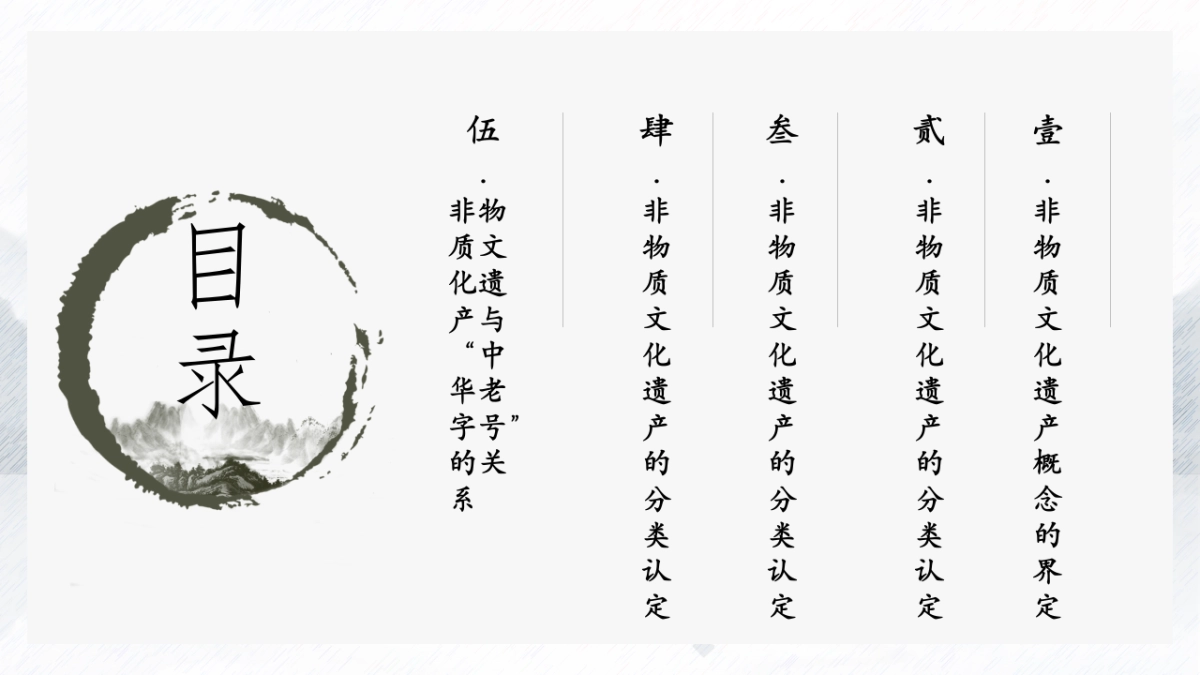 目录
壹.非物质文化遗产概念的界定
贰.非物质文化遗产的分类认定
叁.非物质文化遗产的分类认定
肆.非物质文化遗产的分类认定
伍.非物质文化遗产与“中华老字号”的关系